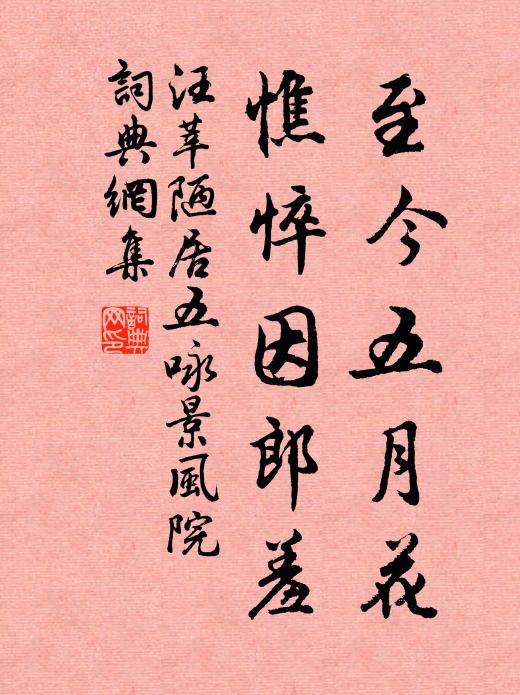 至今五月花
憔悴因郎羞
汪莘陋居五咏景風院
詞典網集
詞典网印